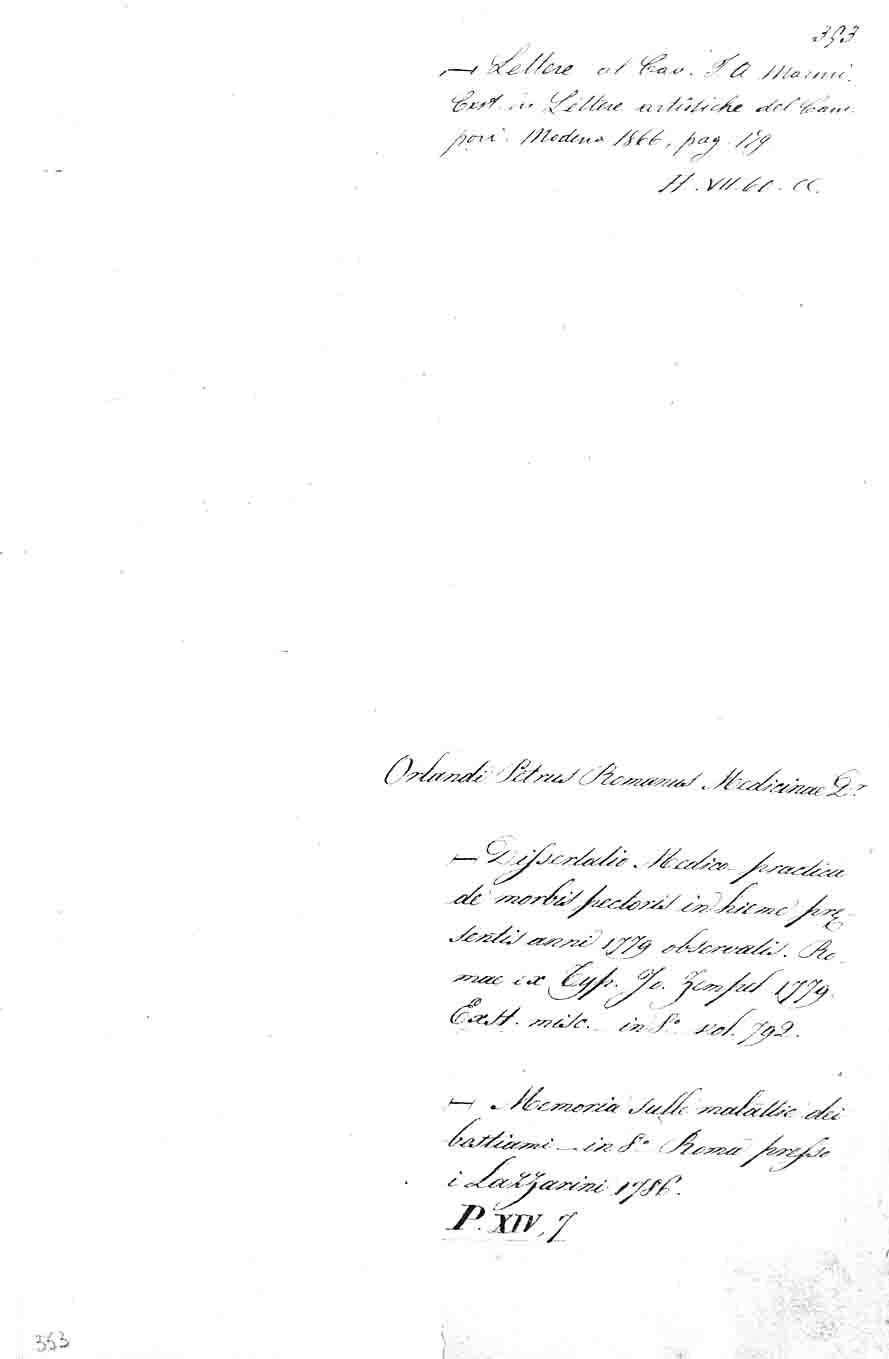 353
— Lettere al Cav. F. A. Marmi.
Exst. in Lettere artistiche del Cam-
pori. Modena 1866, pag. 179
H. VII. 60. CC.
Orlandi Petrus Romanus Medicinae D.r
— Dissertatio Medico-practica
de morbis pectoris in hieme prę-
sentis anni 1779 observatis. Ro-
mae ex Typ. Jo. Zempel 1779.
Exst. misc. in 8.o vol. 792.
— Memoria sulle malattie dei
bestiami — in 8.o Roma presso
i Lazzarini 1786.
P. XIV, 7
353